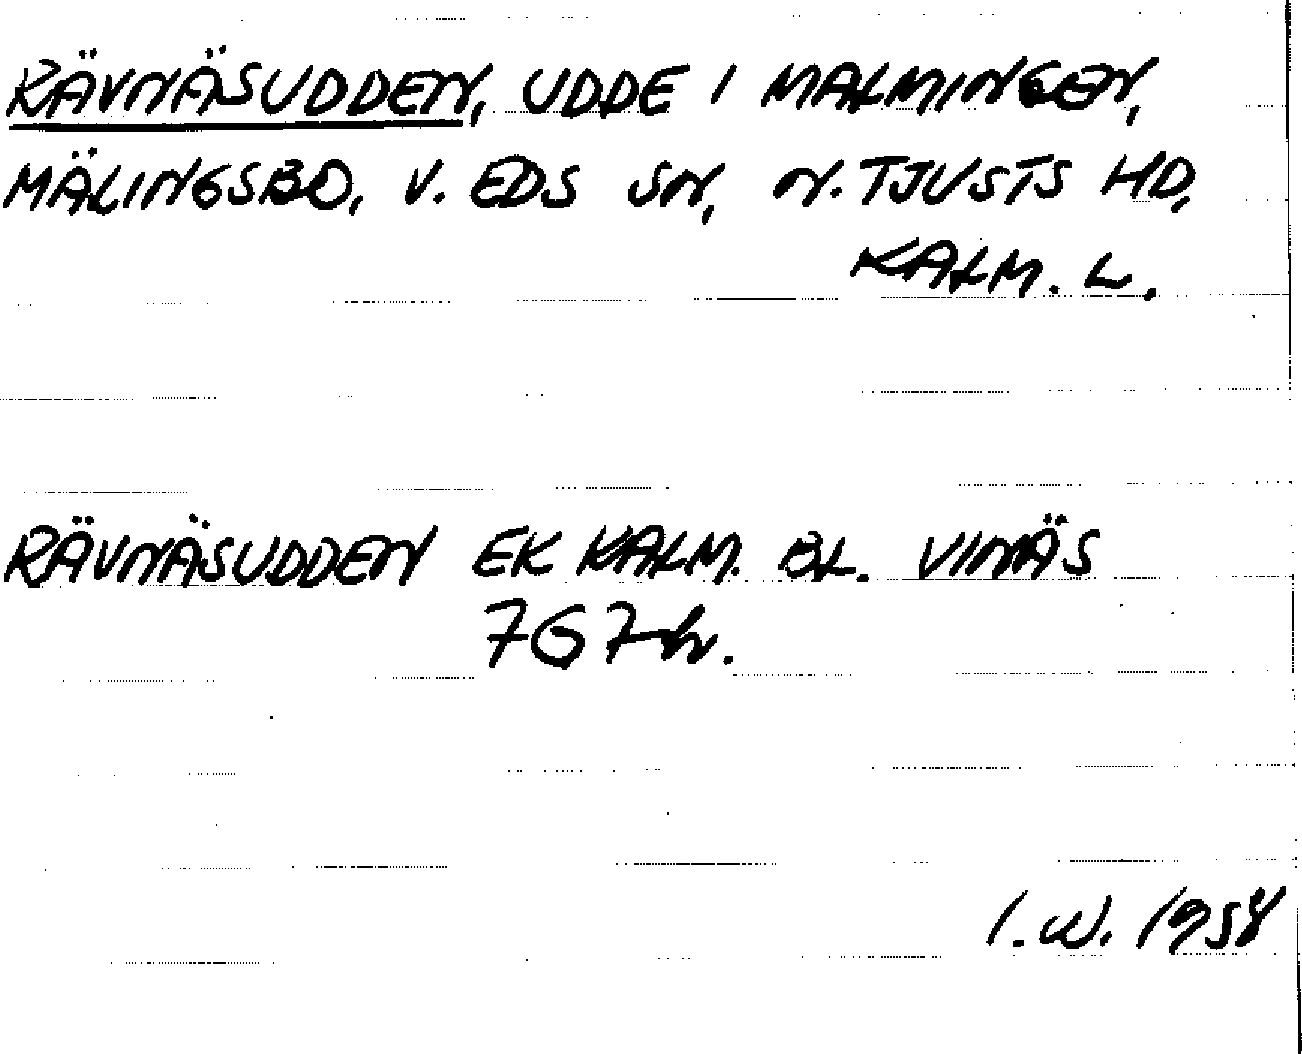 RÄVNÄSUDDEN, UDDE I MALMINGEN,
MÄLINGSBO, V. EDS SN, N. TJUSTS HD,
KALM. L.
RÄVNÄSUDDEN EK KALM. BL. VINÄS
767h.
I.W. 1958